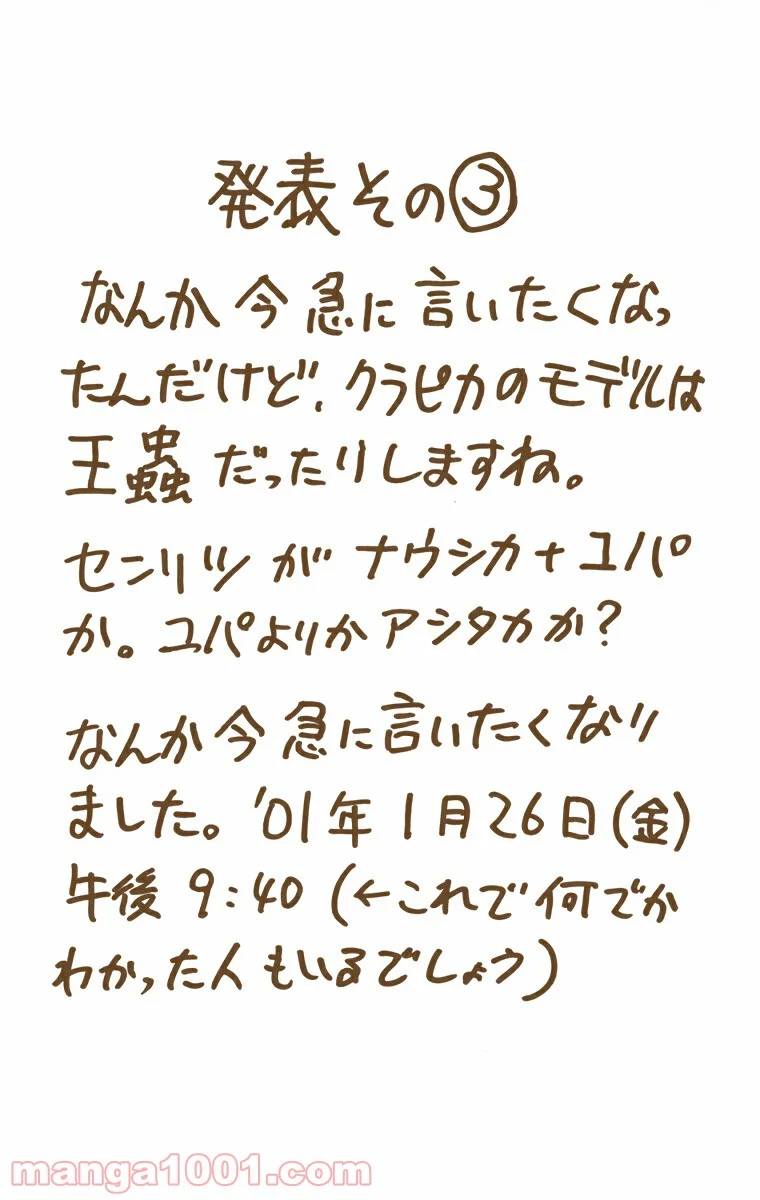 発表その③
なんか今急に言いたくなっ
たんだけど、クラピカのモデルは
王蟲だったりしますね。
センリツがナウシカ+ユパ
か。ユパよりかアシタカか?
なんか今急に言いたくなり
ました。'01年1月26日(金)
午後9:40(←これで何でか
わかった人もいるでしょう)
manga1001.com